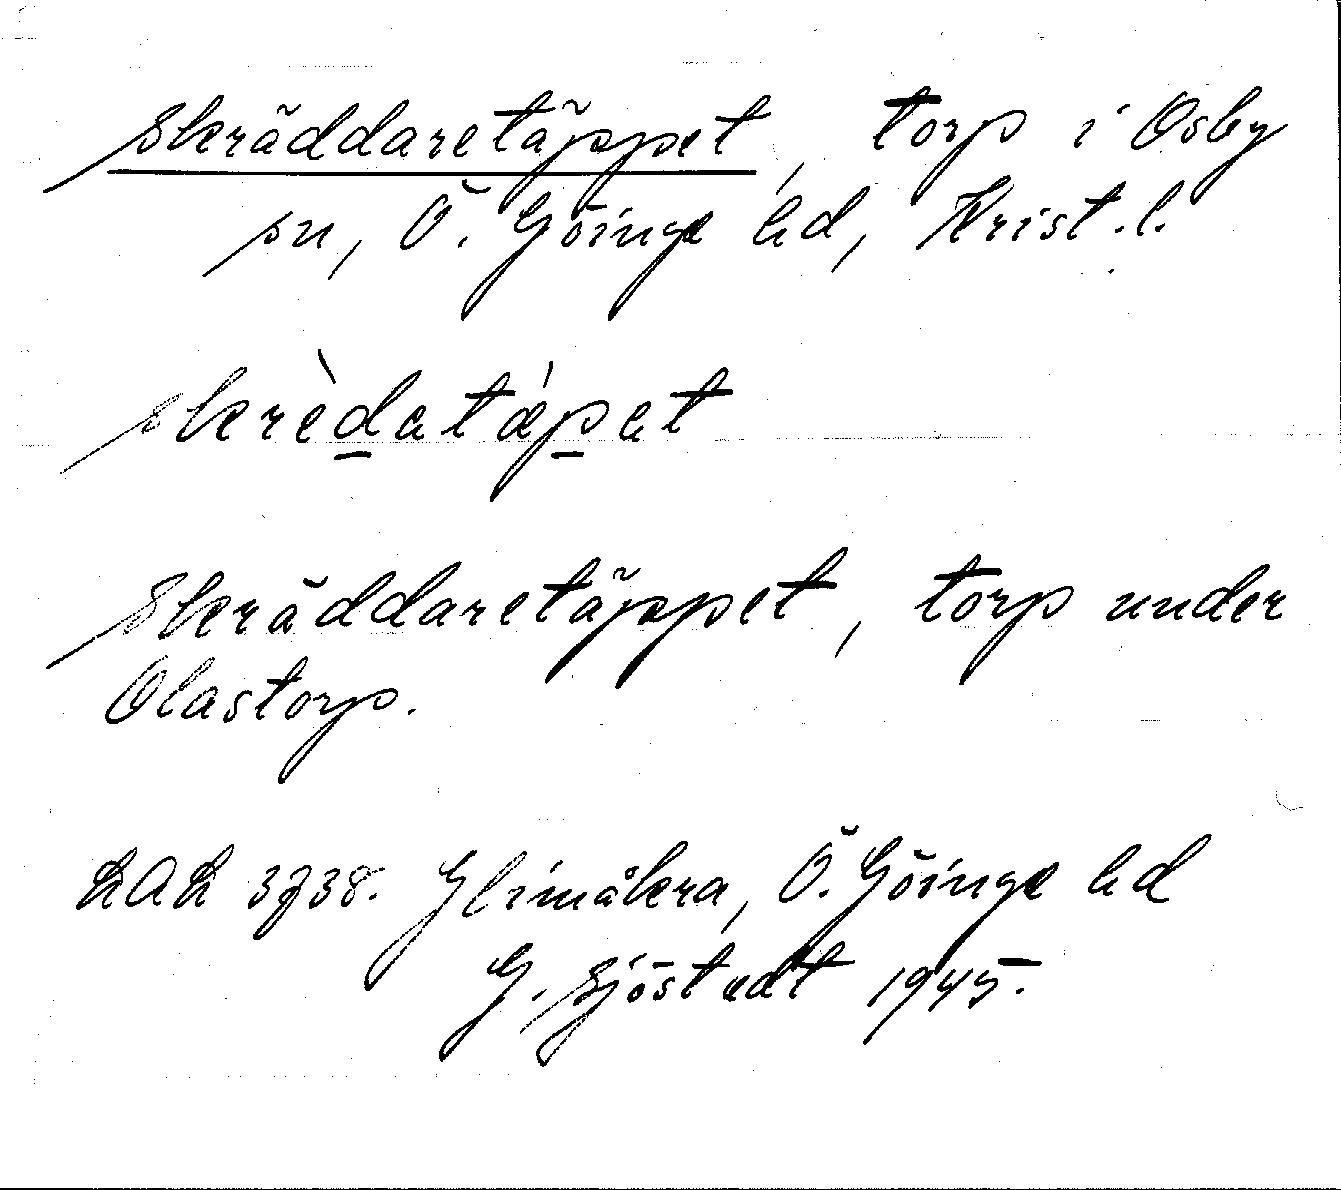 Skräddaretäppet, torp i Osby
sn, Ö. Göinge hd, Krist. l.
skrèdatǽpat
Skräddaretäppet, torp under
Olastorp.
LAL 3738. Glimåkra, Ö. Göinge hd
G. Sjöstedt 1945.